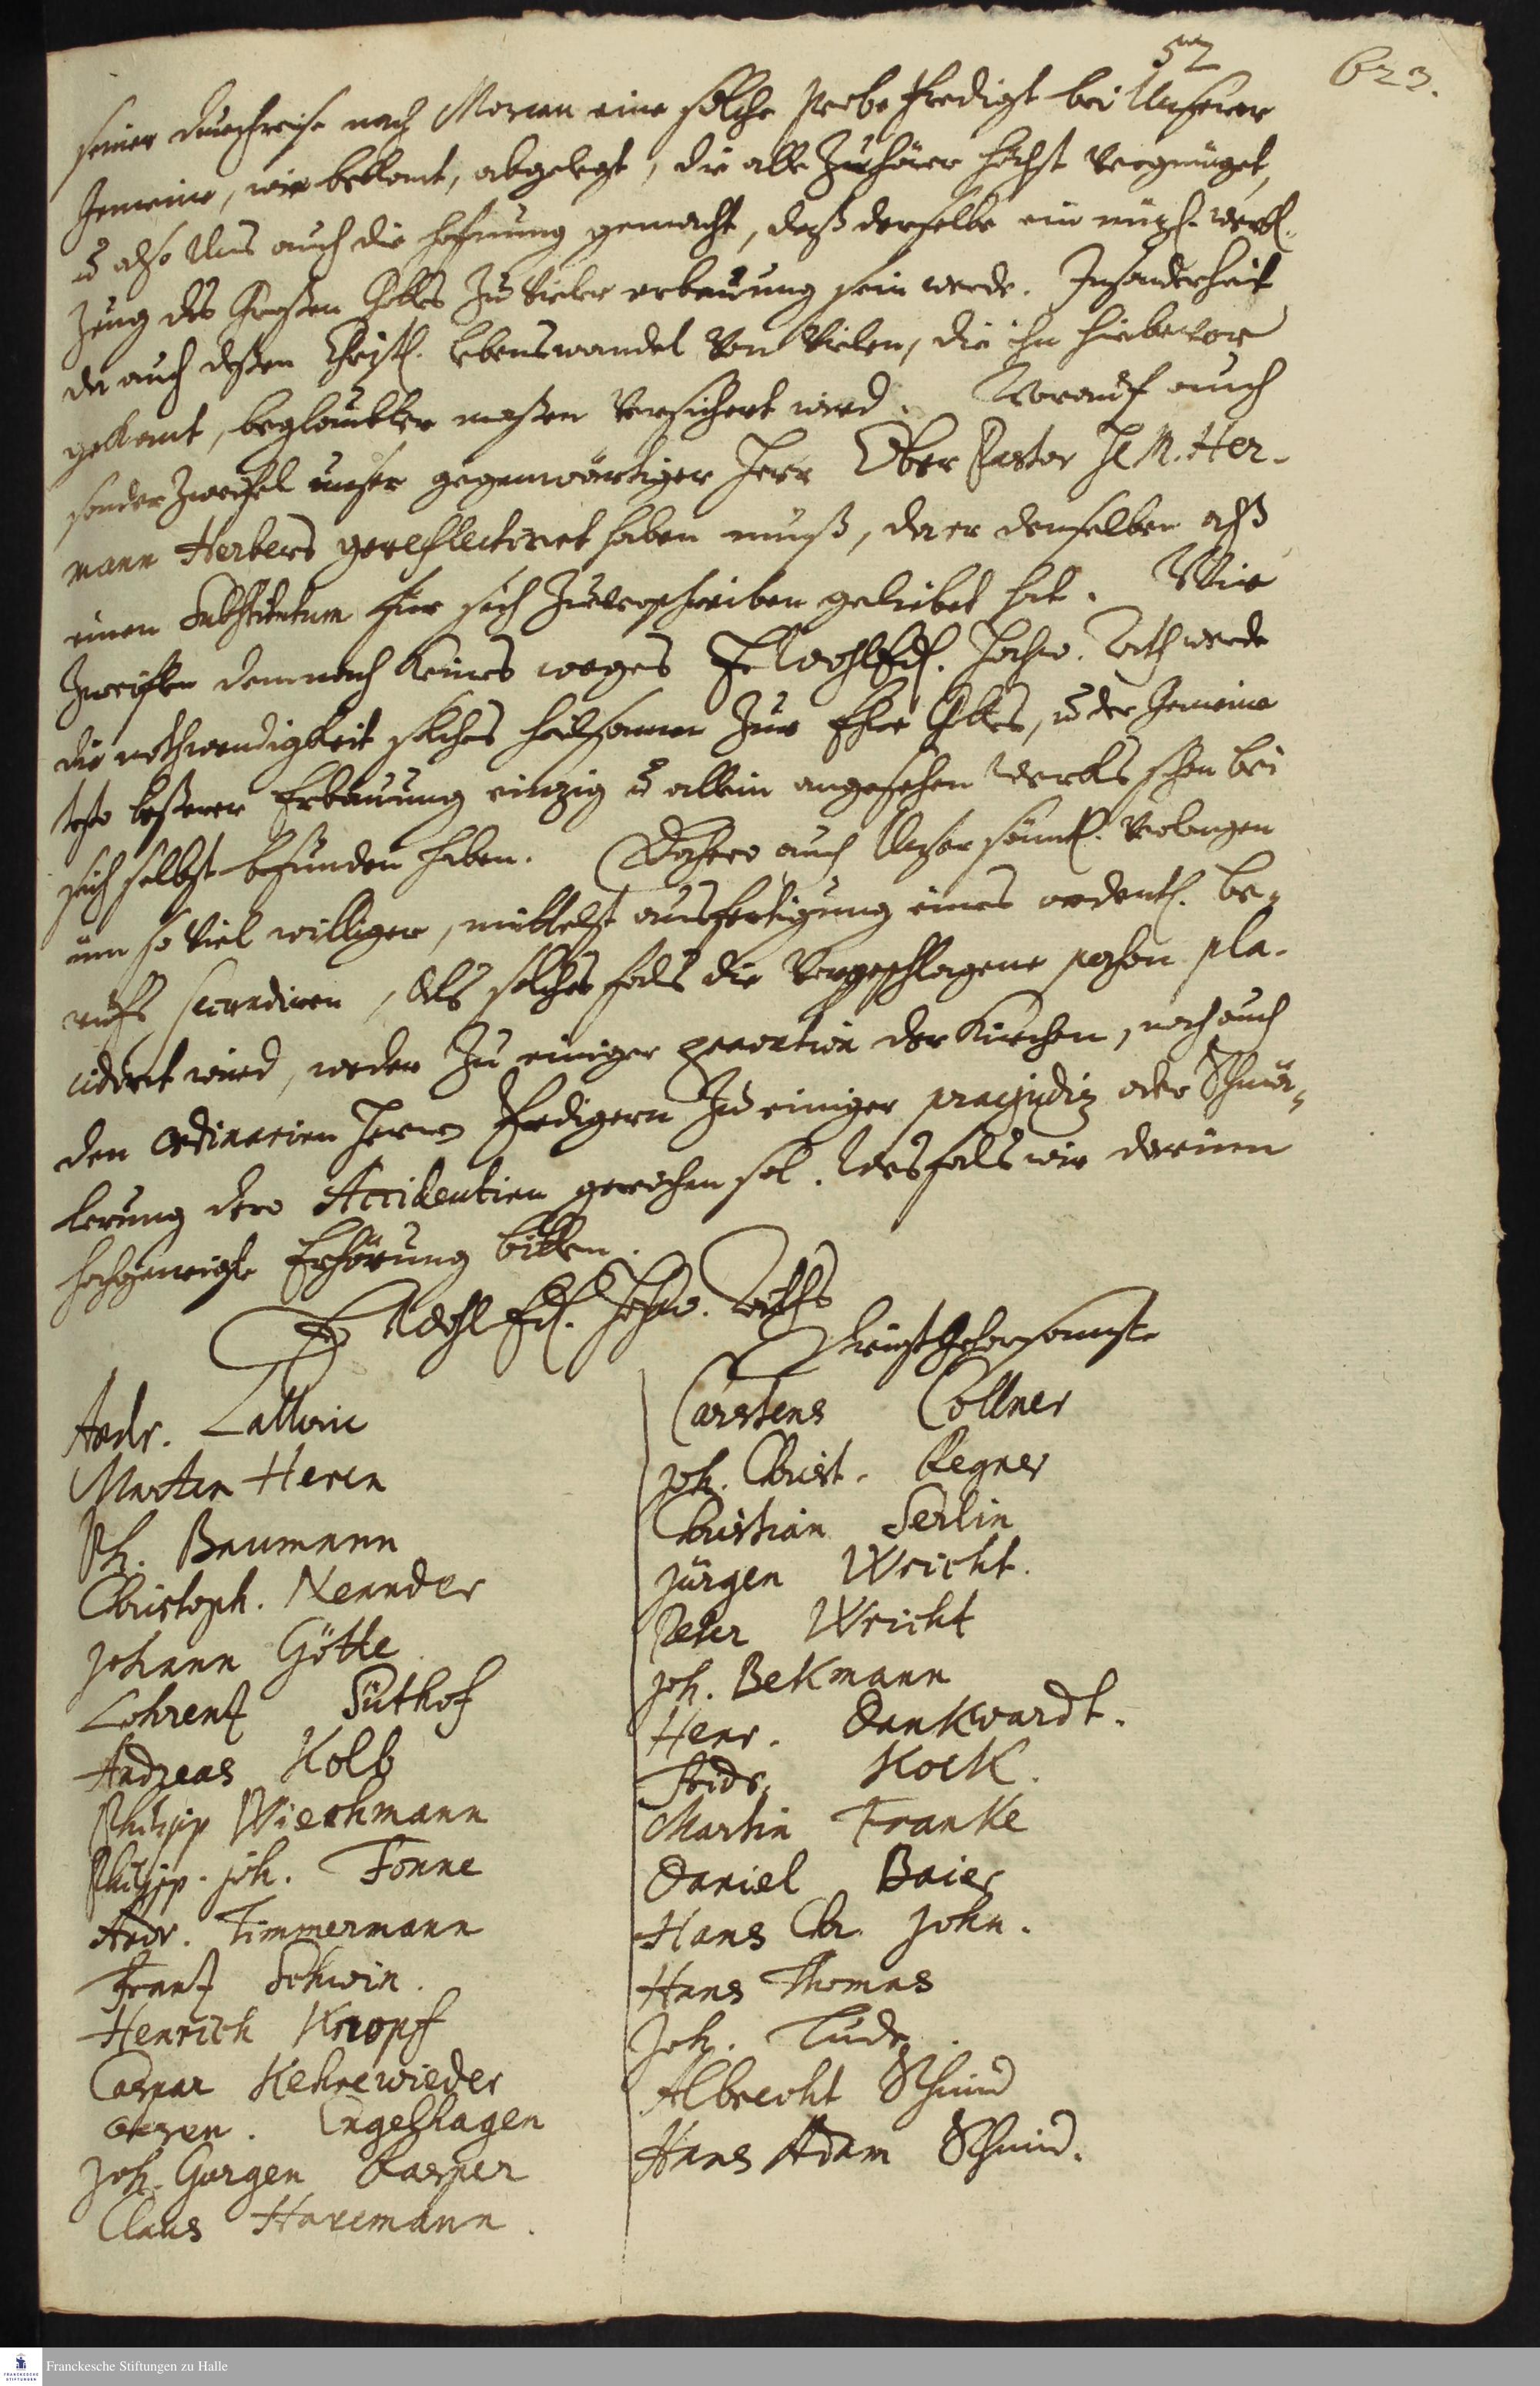 57
623.
seiner durchreise nach Morien eine solche Probe Predigt bei Unserer
Gemeine, wie bekant, abgelegt, die alle Zuhörer höchst vergnüget,
u also Uns auch die hofnung gemacht, daß derselbe ein nützl. werck-
Zeug des Großen Gottes Zu vieler erbauung sein werde. Insonderheit
da auch deßen Christl. lebenswandel von vielen, die ihn hiebevor
gekant, beglaubter maßen versichert wird. Worauf auch
sonder Zweifel unser gegenwärtiger Herr Ober Pastor H. M. Her-
mann Herbers gereflectiret haben muß, da er denselben alß
einen Substitutum für sich Zu verschreiben geliebet hat. Wir
Zweiflen demnach keines weges E. WohlEdl. Hochw. Rath werde
die nothwendigkeit solches heilsamen Zur Ehre Gottes, u der Gemeine
desto beßerer Erbauung einzig u allein angesehen Wercks schon bei
sich selbst befunden haben. Dahero auch Unser sämtl. Verlangen
um so viel williger, mittelst ausfertigung eines ordentl. be-
rufs secundiren, als solches fals die Vorgeschlagene person pla-
cidiret wird, weder Zu einiger gravation der Kirchen, noch auch
den Ordinarien Herren Predigern Zu einiger praejudiz oder Schmä-
lerung dero Accidentien gereichen sol. Desfals wir darum
hochgeneigte Erhörung bitten.
E. WohlEdl. Hochw. Raths
Dienstgehorsamste
Andr. Lattoric
Martin Heren
Ph. Baumann
Christoph. Nennder
Johann Götte
Lohrentz Süthof
Andreas Kolb
Philipp Wiechmann
Philipp. Joh. Fonne
Andr. Timmermann
Frantz Schwin.
Henrich Knopf
Caspar Kehrewieder
Engelhagen
Joh. Gorgen Casper
Claus Haremann.
Carstens Collner
Joh. Christ. Regner
Christian Serlin
Jürgen Wricht.
Peter Wricht
Joh. Bekmann
Henr. Dankwardt.
Fridr. Kock.
Martin Franke
Daniel Baier
Hans Chr. John.
Hans Thomas
Joh. Tude.
Albrecht Schmid
Hans Adam Schmid.
Franckesche Stiftungen zu Halle